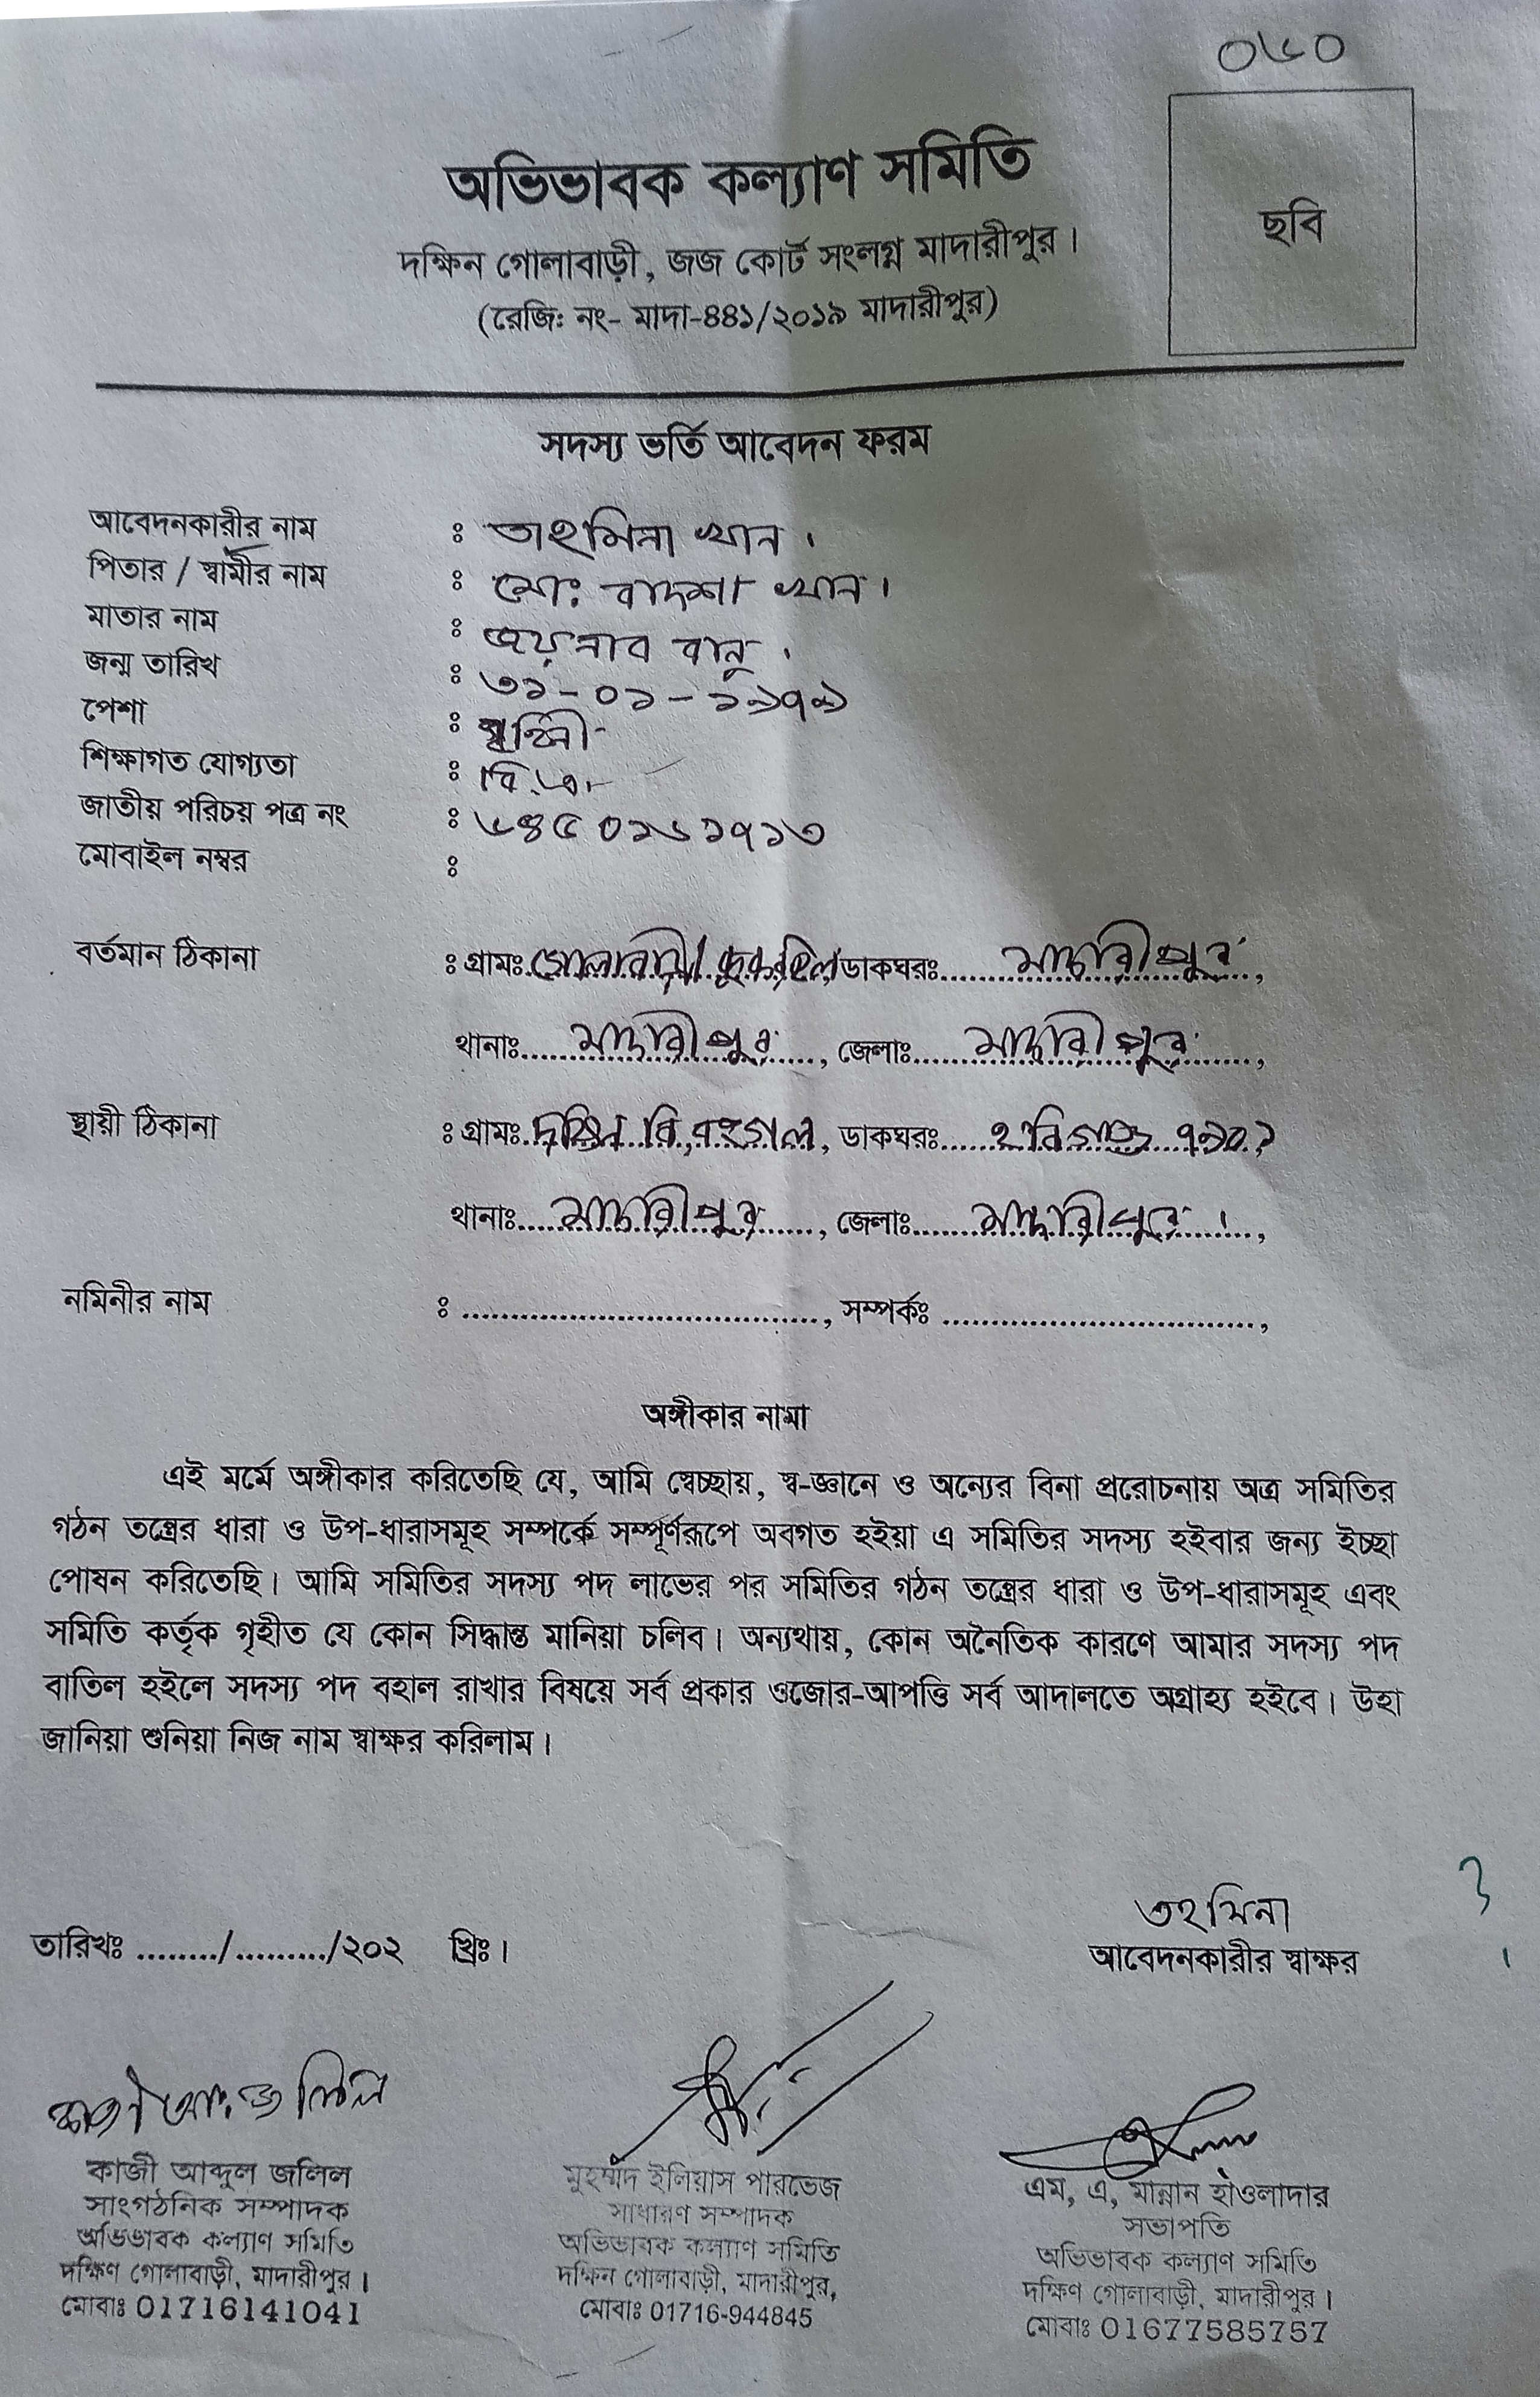 ০৬০
অভিভাবক কল্যাণ সমিতি
দক্ষিন গোলাবাড়ী, জজ কোর্ট সংলগ্ন মাদারীপুর।
(রেজিঃ নং- মাদা-৪৪১/২০১৯ মাদারীপুর)
ছবি
সদস্য ভর্তি আবেদন ফরম
আবেদনকারীর নাম : তাহমিনা খান।
পিতার / স্বামীর নাম : মোঃ বাদশা খান।
মাতার নাম : জয়নাব বানু।
জন্ম তারিখ : ৩১-০১-১৯৭৯
পেশা :
শিক্ষাগত যোগ্যতা : বি.এ.
জাতীয় পরিচয় পত্র নং : ৬৪৫০১৬১৭১৩
মোবাইল নম্বর :
বর্তমান ঠিকানা : গ্রামঃ গোলাবাড়ী, ডাকঘরঃ মাদারীপুর,
থানাঃ মাদারীপুর, জেলাঃ মাদারীপুর,
স্থায়ী ঠিকানা : গ্রামঃ দক্ষিন, ডাকঘরঃ হবিগঞ্জ
থানাঃ মাদারীপুর, জেলাঃ মাদারীপুর।,
নমিনীর নাম : ...................................., সম্পর্কঃ ................................,
অঙ্গীকার নামা
এই মর্মে অঙ্গীকার করিতেছি যে, আমি স্বেচ্ছায়, স্ব-জ্ঞানে ও অন্যের বিনা প্ররোচনায় অত্র সমিতির
গঠন তন্ত্রের ধারা ও উপ-ধারাসমূহ সম্পর্কে সম্পূর্ণরূপে অবগত হইয়া এ সমিতির সদস্য হইবার জন্য ইচ্ছা
পোষন করিতেছি। আমি সমিতির সদস্য পদ লাভের পর সমিতির গঠন তন্ত্রের ধারা ও উপ-ধারাসমূহ এবং
সমিতি কর্তৃক গৃহীত যে কোন সিদ্ধান্ত মানিয়া চলিব। অন্যথায়, কোন অনৈতিক কারণে আমার সদস্য পদ
বাতিল হইলে সদস্য পদ বহাল রাখার বিষয়ে সর্ব প্রকার ওজোর-আপত্তি সর্ব আদালতে অগ্রাহ্য হইবে। উহা
জানিয়া শুনিয়া নিজ নাম স্বাক্ষর করিলাম।
তহমিনা
তারিখঃ ......../........./২০২ খ্রিঃ।
আবেদনকারীর স্বাক্ষর
কাজী আঃ জলিল
কাজী আব্দুল জলিল
সাংগঠনিক সম্পাদক
অভিভাবক কল্যাণ সমিতি
দক্ষিণ গোলাবাড়ী, মাদারীপুর।
মোবাঃ 01716141041
মুহম্মদ ইলিয়াস পারভেজ
সাধারণ সম্পাদক
অভিভাবক কল্যাণ সমিতি
দক্ষিন গোলাবাড়ী, মাদারীপুর,
মোবাঃ 01716-944845
এম, এ, মান্নান হাওলাদার
সভাপতি
অভিভাবক কল্যাণ সমিতি
দক্ষিণ গোলাবাড়ী, মাদারীপুর।
মোবাঃ 01677585757